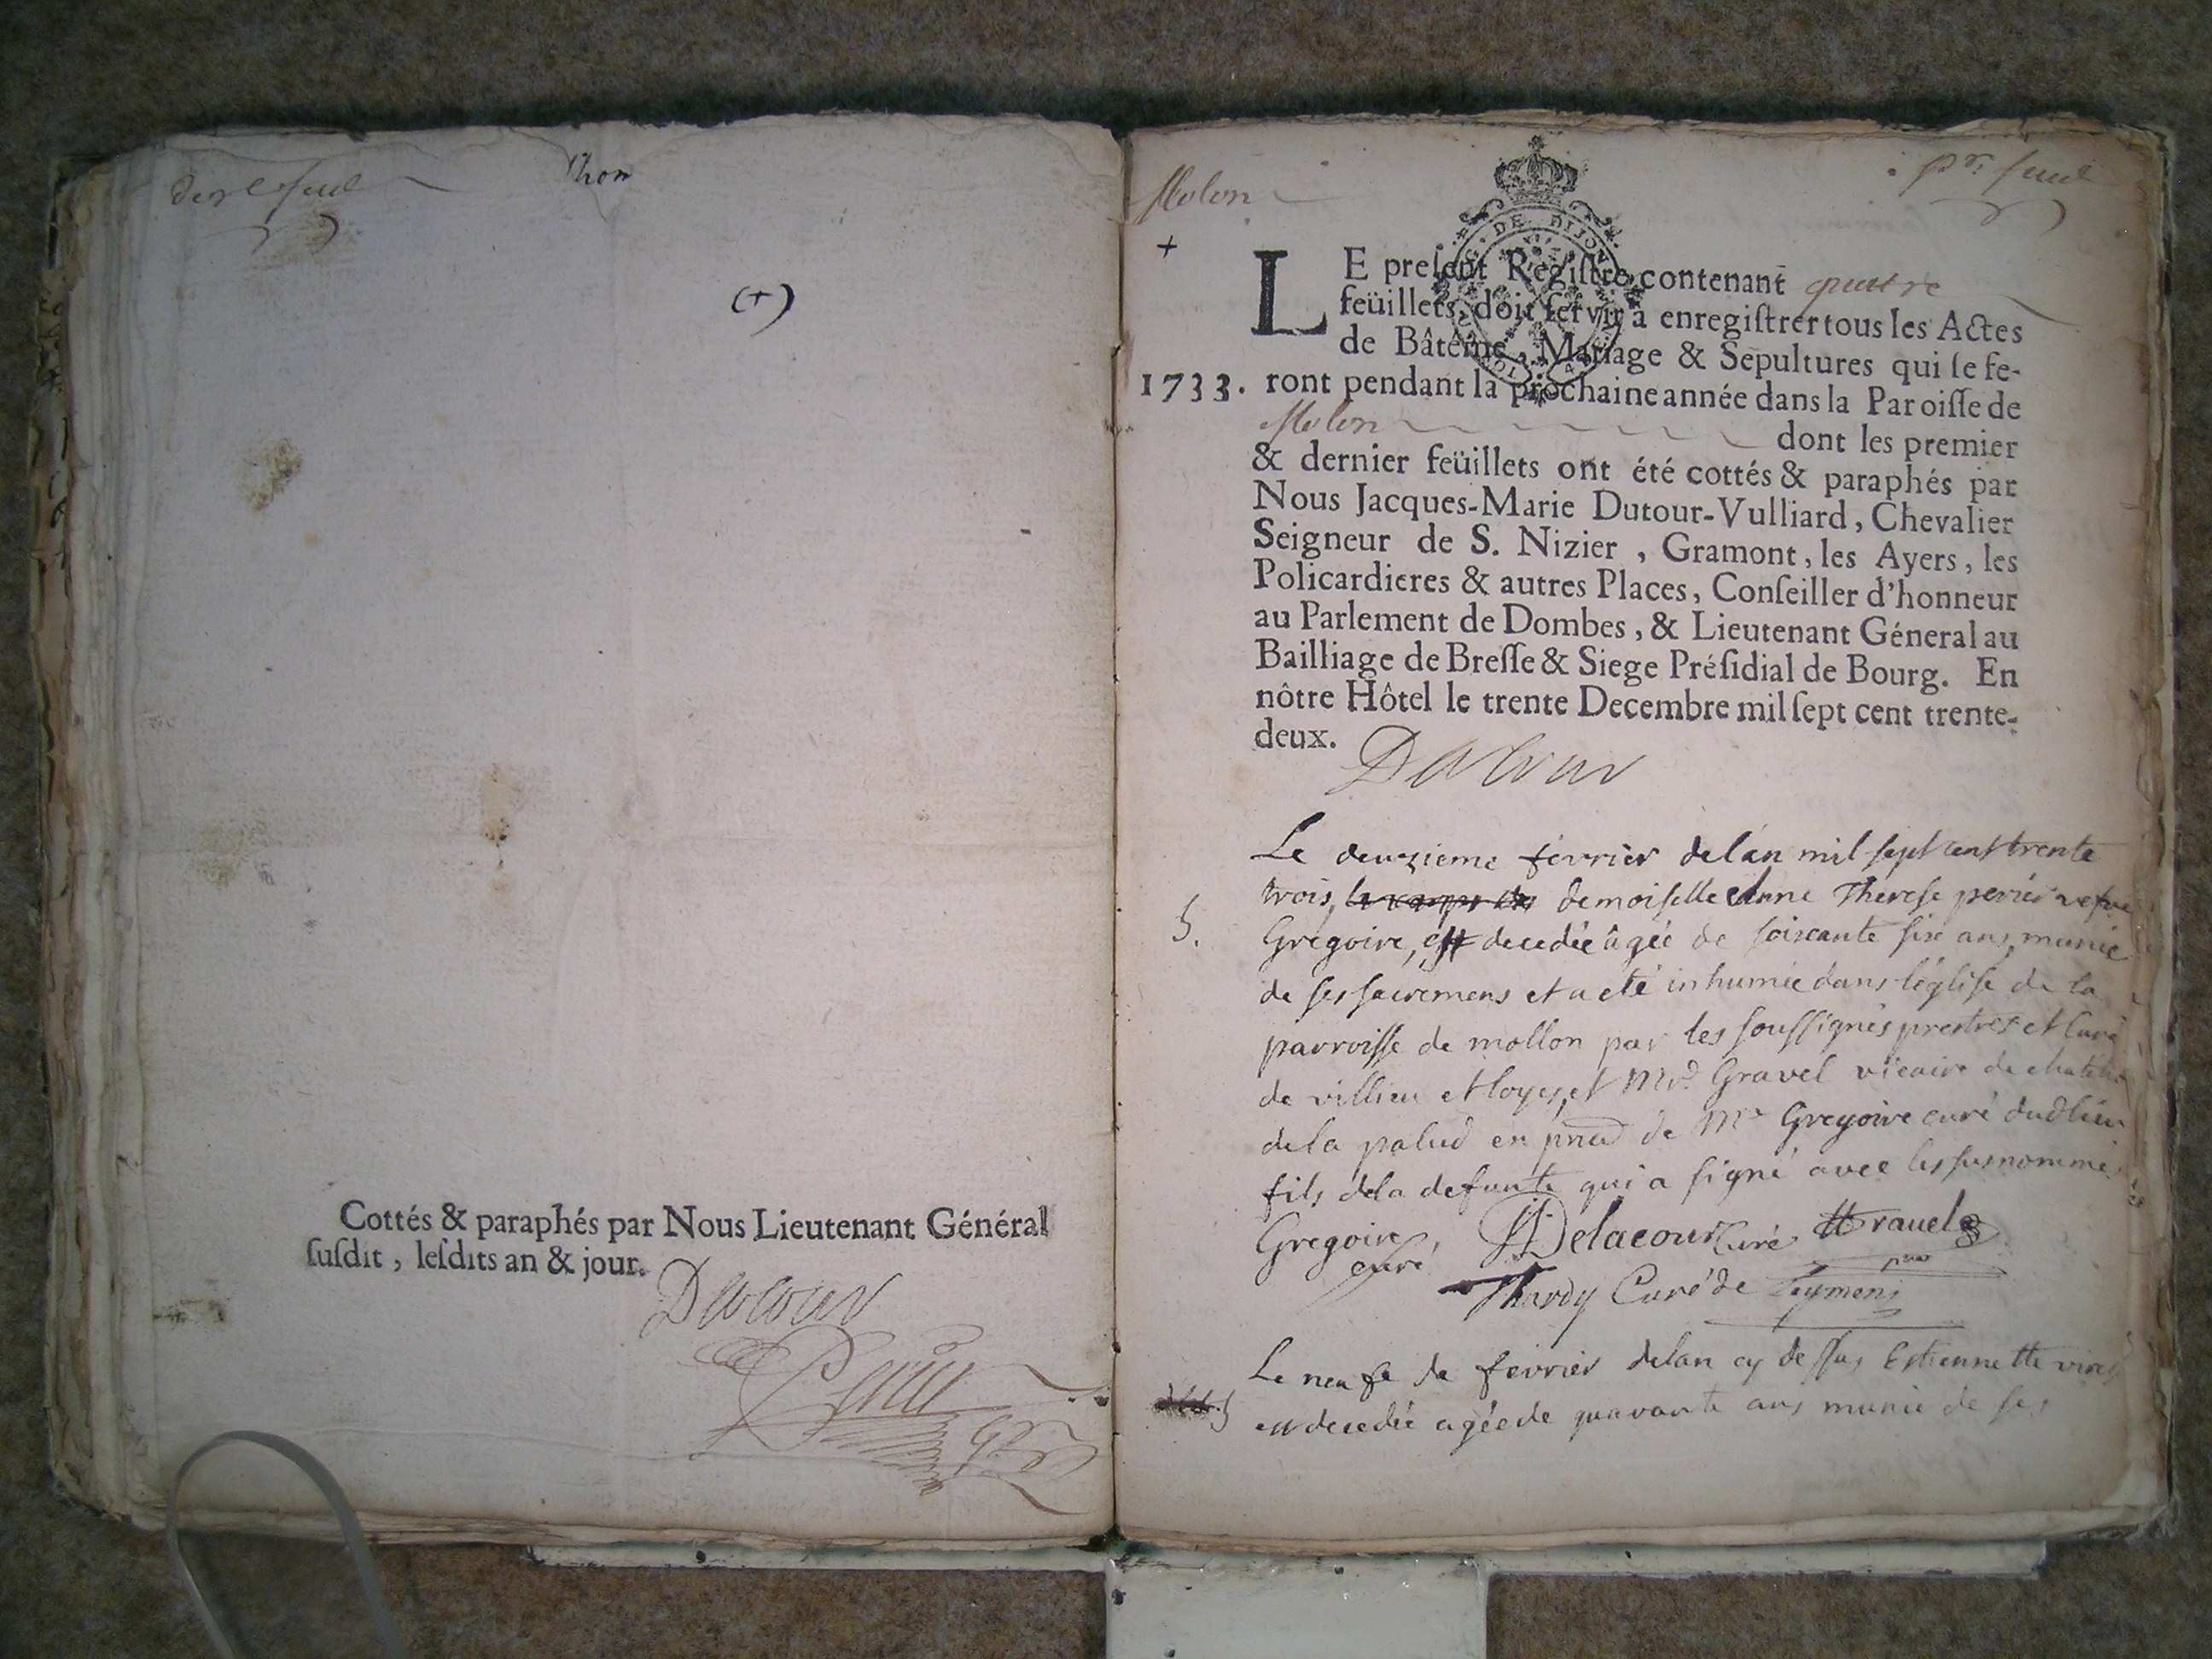 der feuil
(+)
Cottés & paraphés par Nous Lieutenant Général
ſuſdit, leſdits an & jour.
Molon
pr. feuil
+
DE DIJON
LE preſent Regiſtre contenant quatre
feüillets, doit ſervir à enregiſtrer tous les Actes
de Bâtême, Mariage & Sepultures qui ſe fe-
1733. ront pendant la prochaine année dans la Paroiſſe de
Molon dont les premier
& dernier feüillets ont été cottés & paraphés par
Nous Jacques-Marie Dutour-Vulliard, Chevalier
Seigneur de S. Nizier, Gramont, les Ayers, les
Policardieres & autres Places, Conſeiller d'honneur
au Parlement de Dombes, & Lieutenant Géneral au
Bailliage de Breſſe & Siege Préſidial de Bourg. En
nôtre Hôtel le trente Decembre mil ſept cent trente-
deux.
Dutour
Le deuzieme fevrier de lan mil sept cent trente
trois, demoiselle Anne Therese perier vefve
S. Gregoire, est decedée âgée de soixante six ans munie
de ses sacremens et a eté inhumée dans l'église de la
parroisse de mollon par les soussignés prestres et curé
de villieu et loyes, et Mr. Gravel vicaire de
de la palud en de Mr Gregoire curé dud lieu
fils de la defunte qui a signé avec les susnommés
Gregoire curé Delacour Curé Gravel
Hardy Curé de Leymens
Le neufe de fevrier de lan cy dessus Estiennette
S est decedée agée de quarante ans munie de ses